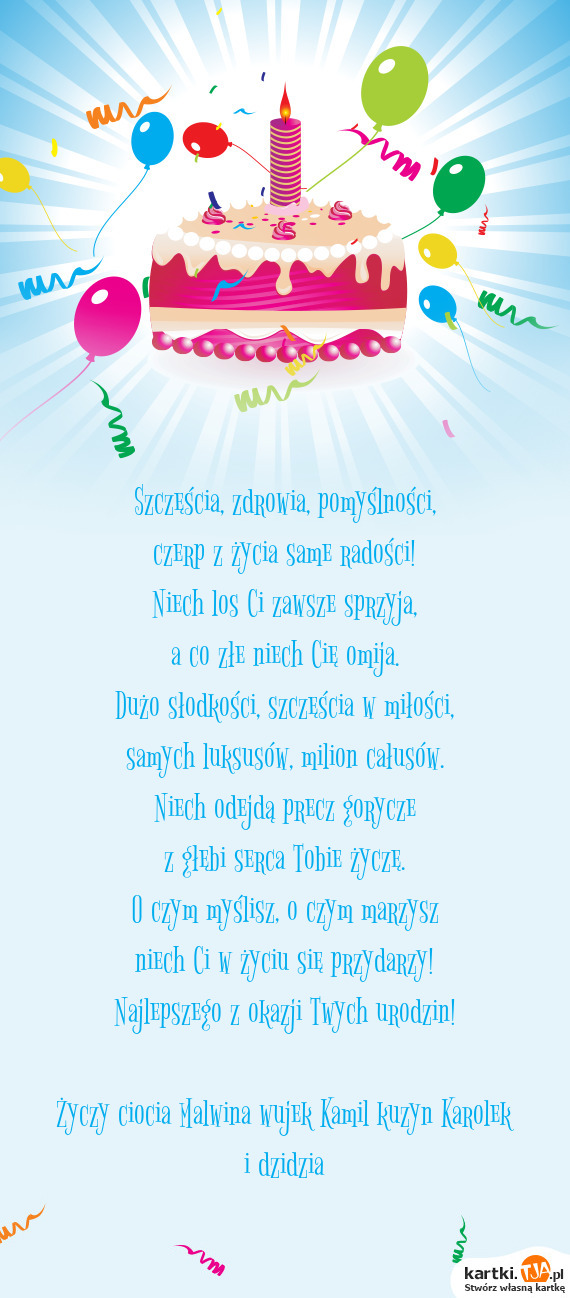 Szczęścia, zdrowia, pomyślności,
czerp z życia same radości!
Niech los Ci zawsze sprzyja,
a co złe niech Cię omija.
Dużo słodkości, szczęścia w miłości,
samych luksusów, milion całusów.
Niech odejdą precz gorycze
z głębi serca Tobie życzę.
O czym myślisz, o czym marzysz
niech Ci w życiu się przydarzy!
Najlepszego z okazji Twych urodzin!
Życzy ciocia Malwina wujek Kamil kuzyn Karolek
i dzidzia
kartki.TJA.pl
Stwórz własną kartkę